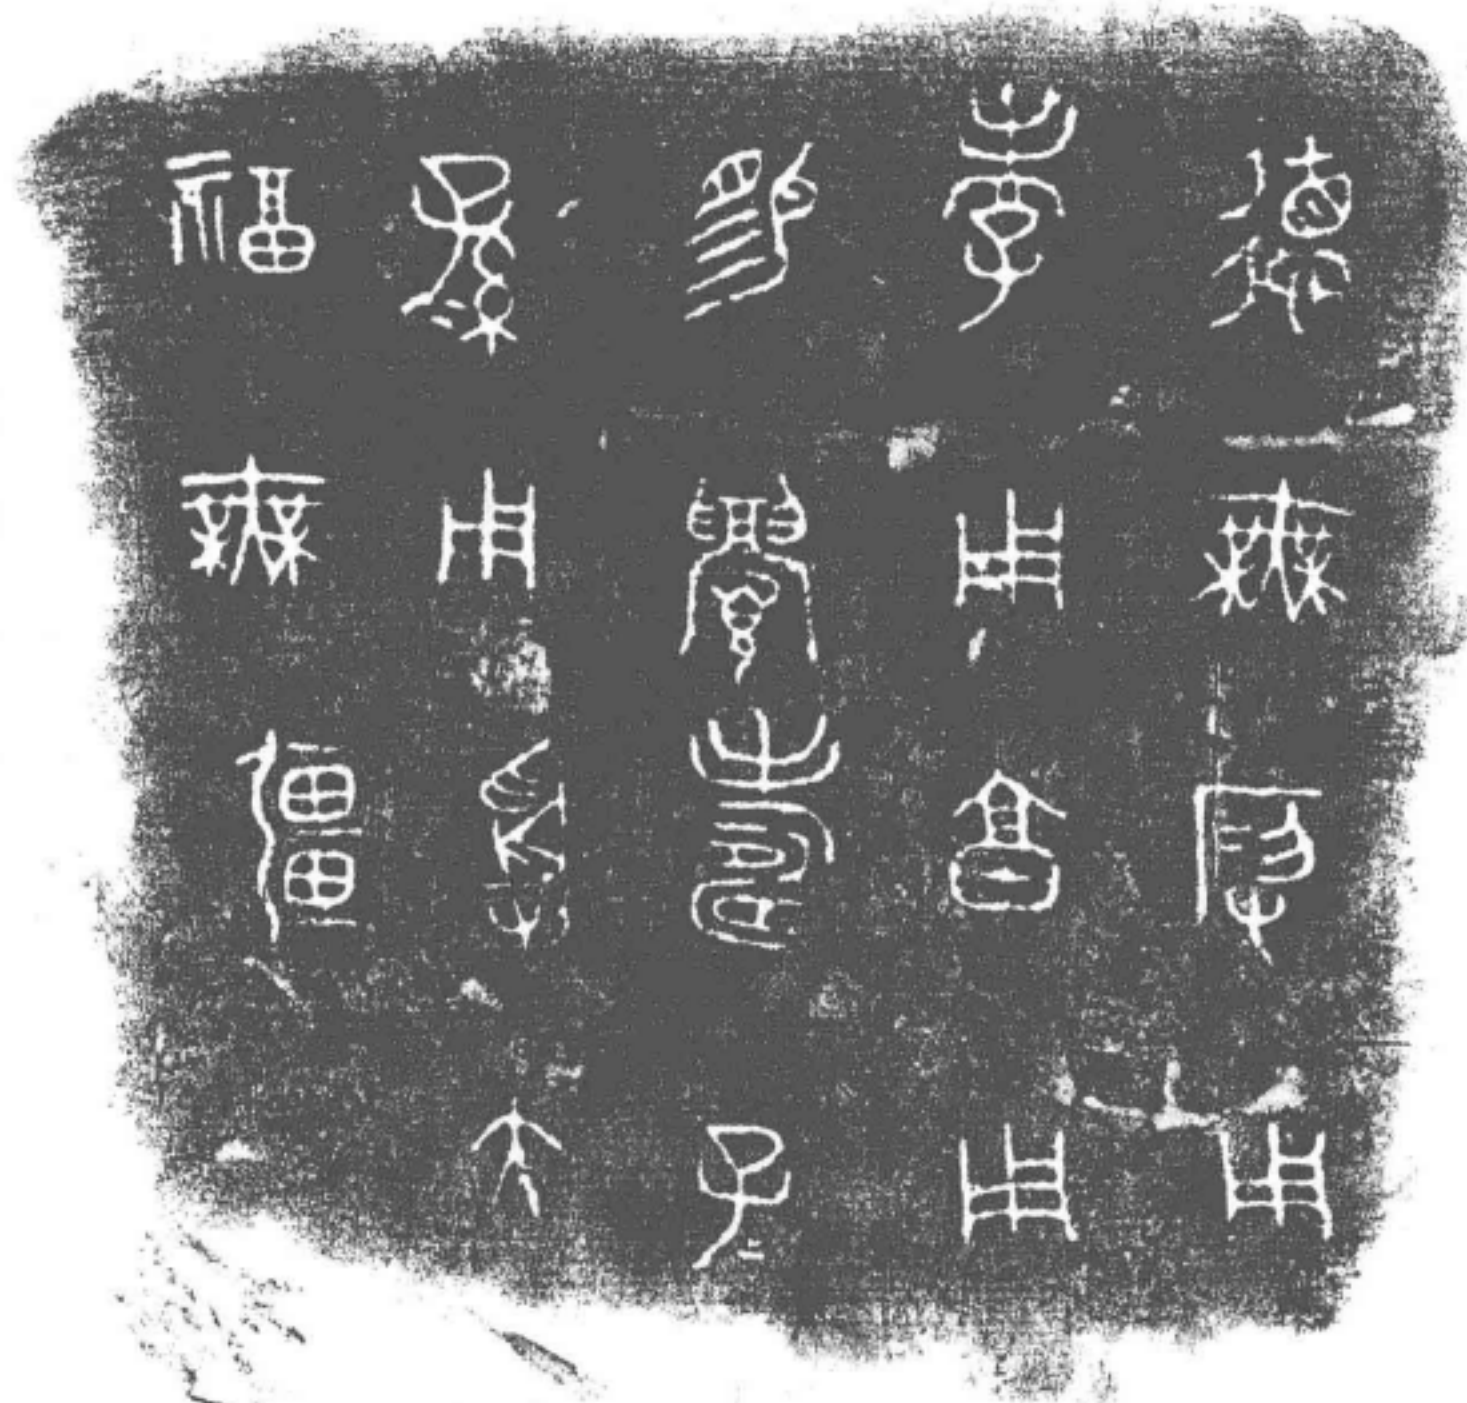 德無叚用
孝用享用
賜眉壽子=
孫=用受大
福無疆